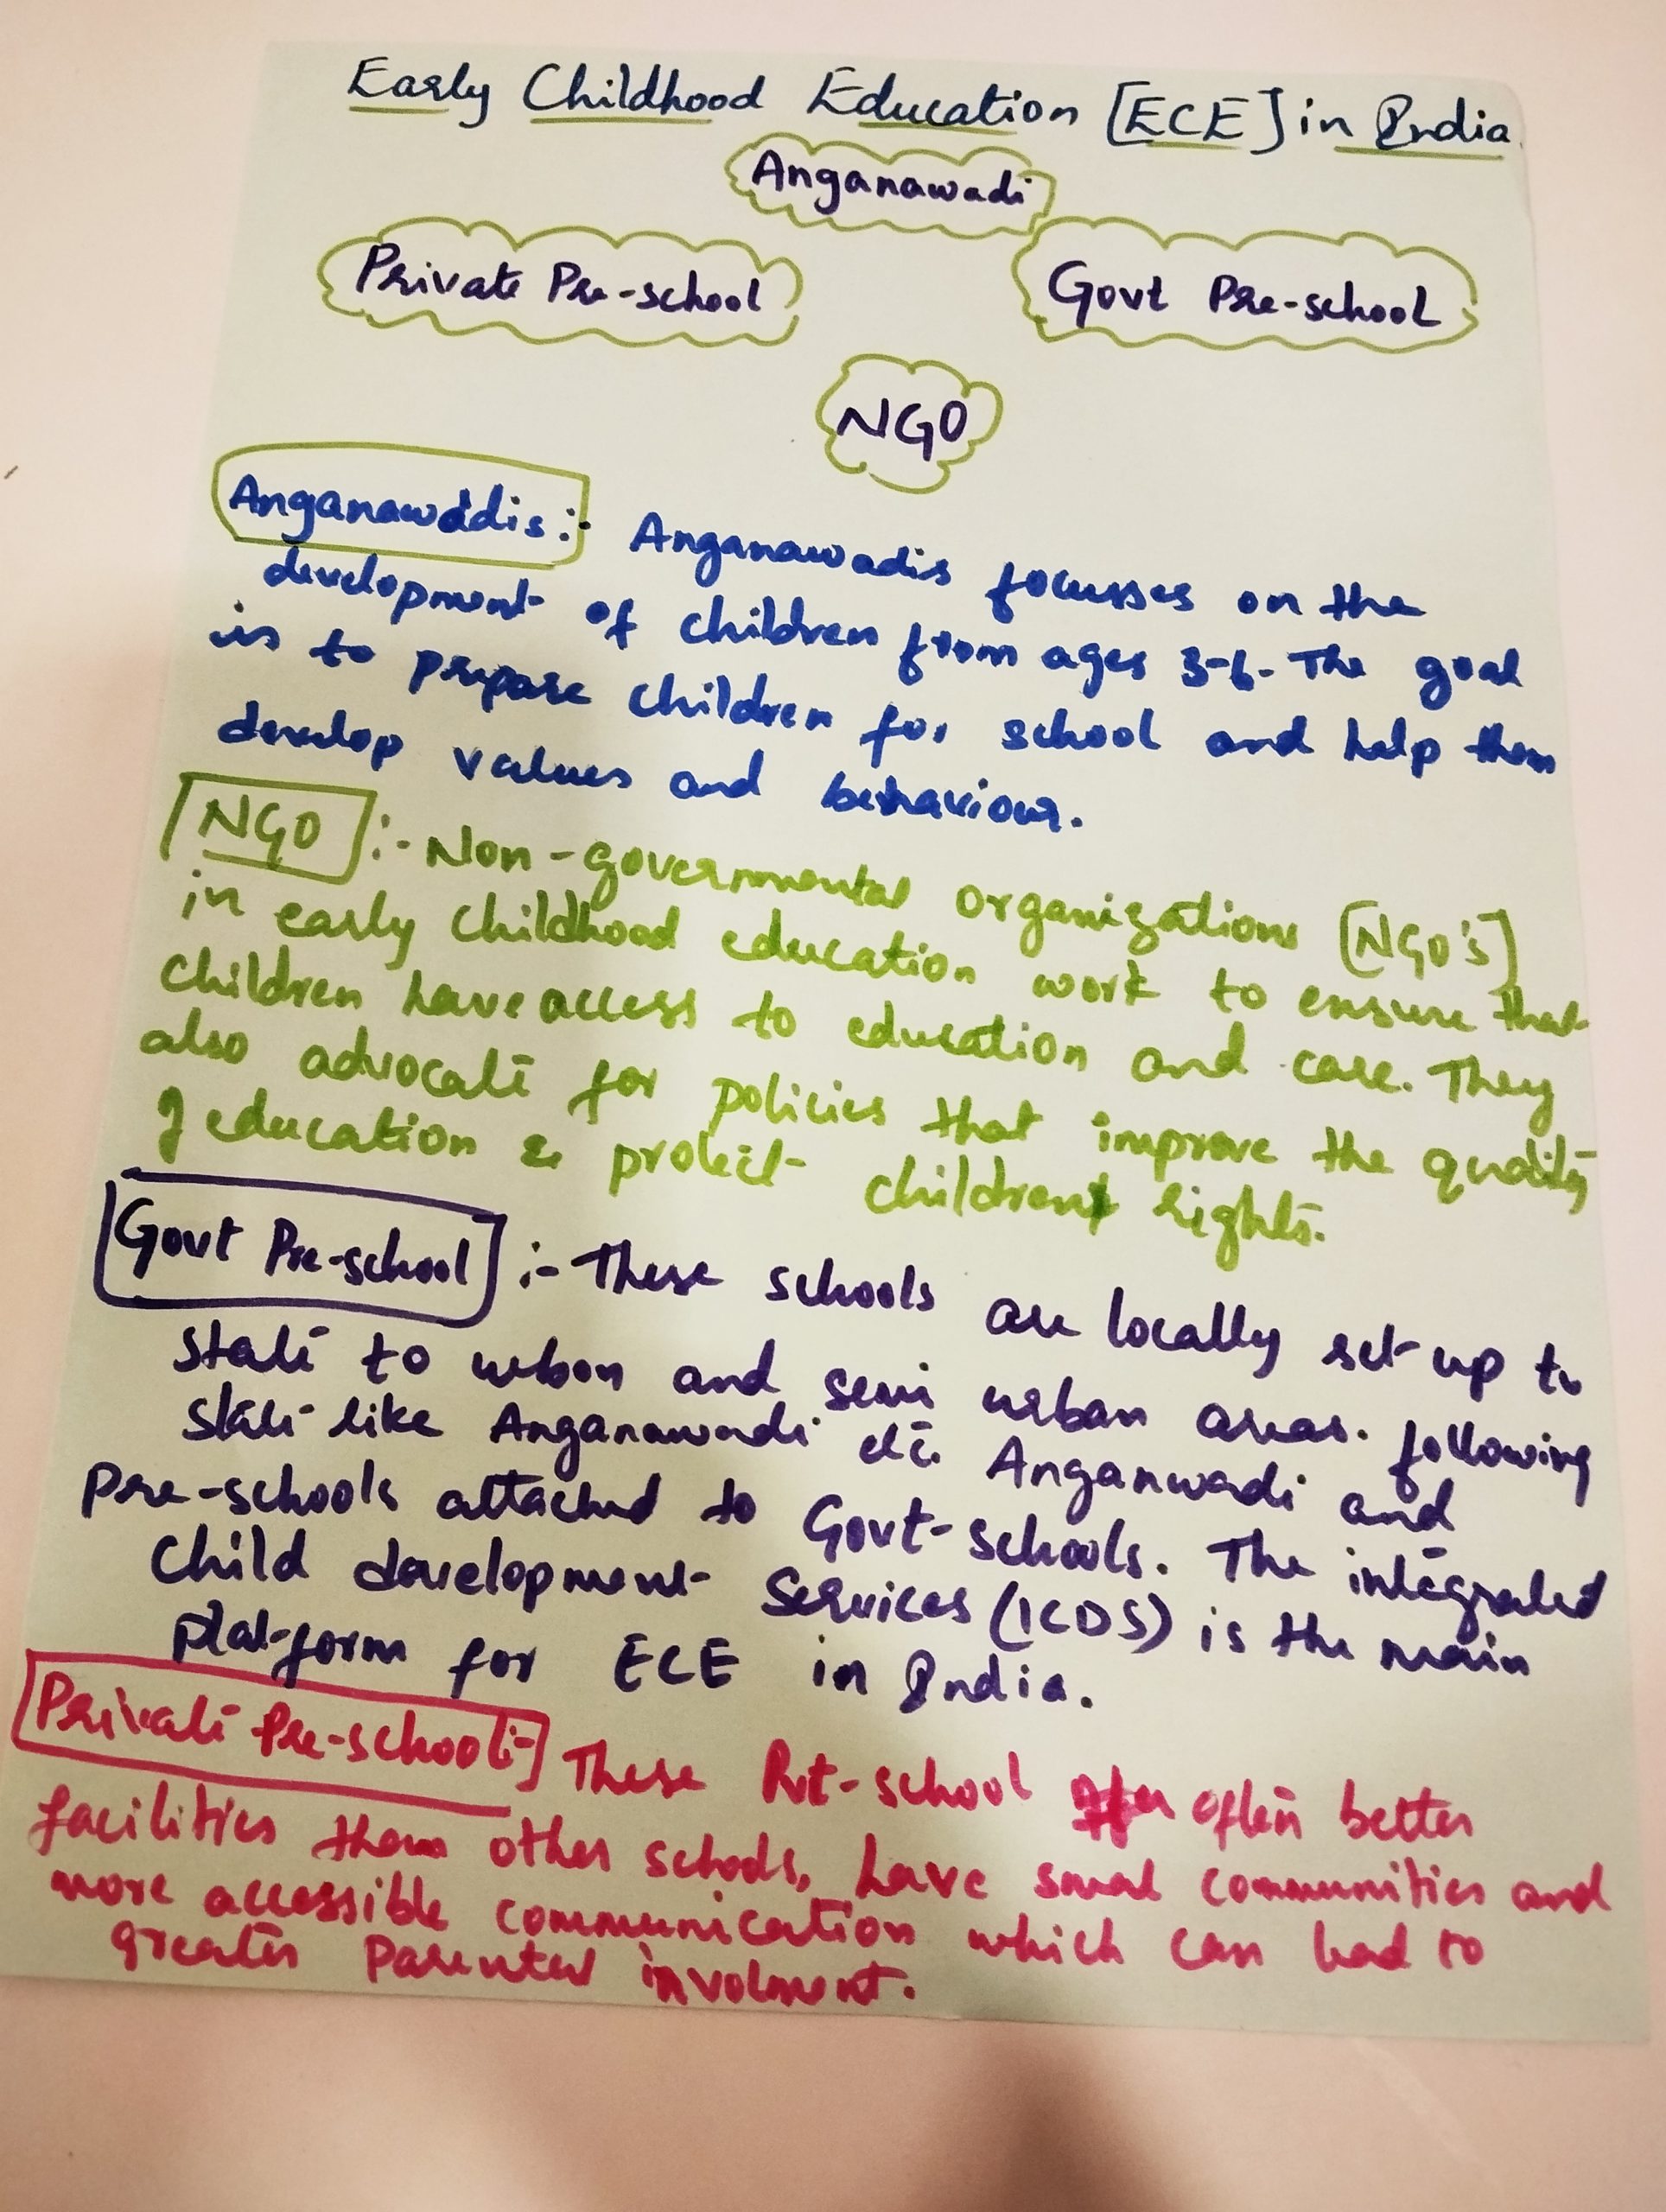 Early Childhood Education [ECE] in India
Anganawadi
Private Pre-school
Govt Pre-school
NGO
Anganawadis:- Anganawadis focusses on the
development of children from ages 3-6. The goal
is to prepare children for school and help them
develop values and behaviour.
NGO :- Non-governmental organizations [NGO's]
in early childhood education work to ensure that
children have access to education and care. They
also advocate for policies that improve the quality
of education & protect children rights.
Govt Pre-school :- These schools are locally set up to
state to urban and semi urban areas. following
state like Anganawadi etc. Anganwadi and
Pre-schools attached to Govt-schools. The integrated
Child development Services (ICDS) is the main
platform for ECE in India.
Private Pre-school:- These Pvt-school often better
facilities them other schools, have small communities and
more accessible communication which can lead to
greater parental involment.